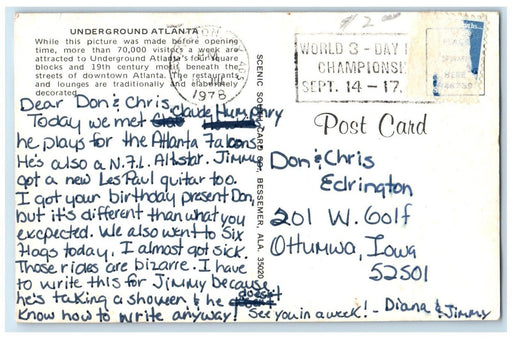 UNDERGROUND ATLANTA
While this picture was made before opening
time, more than 70,000 visitors a week are
attracted to Underground Atlanta's four square
blocks and 19th century beneath the
streets of downtown Atlanta. The restaurants
and lounges are traditionally and elaborately
decorated.
Dear Don & Chris,
Today we met Claude Humphry
he plays for the Atlanta Falcons
He's also a N.F.L. Allstar. Jimmy
got a new Les Paul guitar too.
I got your birthday present Don,
but it's different than what you
excpected. We also went to Six
Flags today. I almost got sick.
Those rides are bizarre. I have
to write this for Jimmy because
he's taking a shower & he doesn't
know how to write anyway! See you in a week! - Diana & Jimmy
SCENIC SOUTH CARD CO., BESSEMER, ALA. 35020
1978
WORLD 3-DAY
CHAMPIONS
SEPT. 14-17.
$ 2
PLACE
HERE
Post Card
Don & Chris
Edrington
201 W. Golf
Ottumwa, Iowa
52501